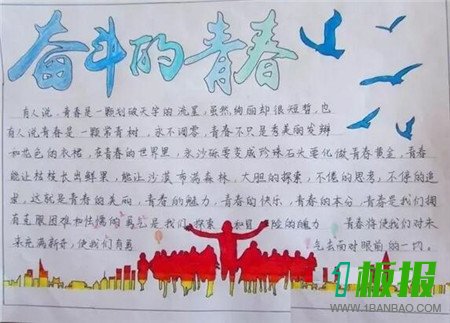 奋斗的青春
有人说,青春是一颗划破天宇的流星,虽然绚丽却很短暂,也
有人说青春是一颗常青树,永不调零,青春不只是秀美的发辫
和花色的衣裙,在青春的世界里,沙砾要变成珍珠石头要化做黄金,青春
能让枯枝长出鲜果,能让沙漠布满森林,大胆的探索,不倦的思考,不停的追
求,这就是青春的美丽,青春的魅力,青春的快乐,青春的本分,青春是我们拥
有克服困难和怯懦的勇气是我们探索和冒险的魄力 青春将使我们对未
来充满新奇,使我们有勇气去面对眼前的一切。
1板报
WWW.1BANBAO.COM